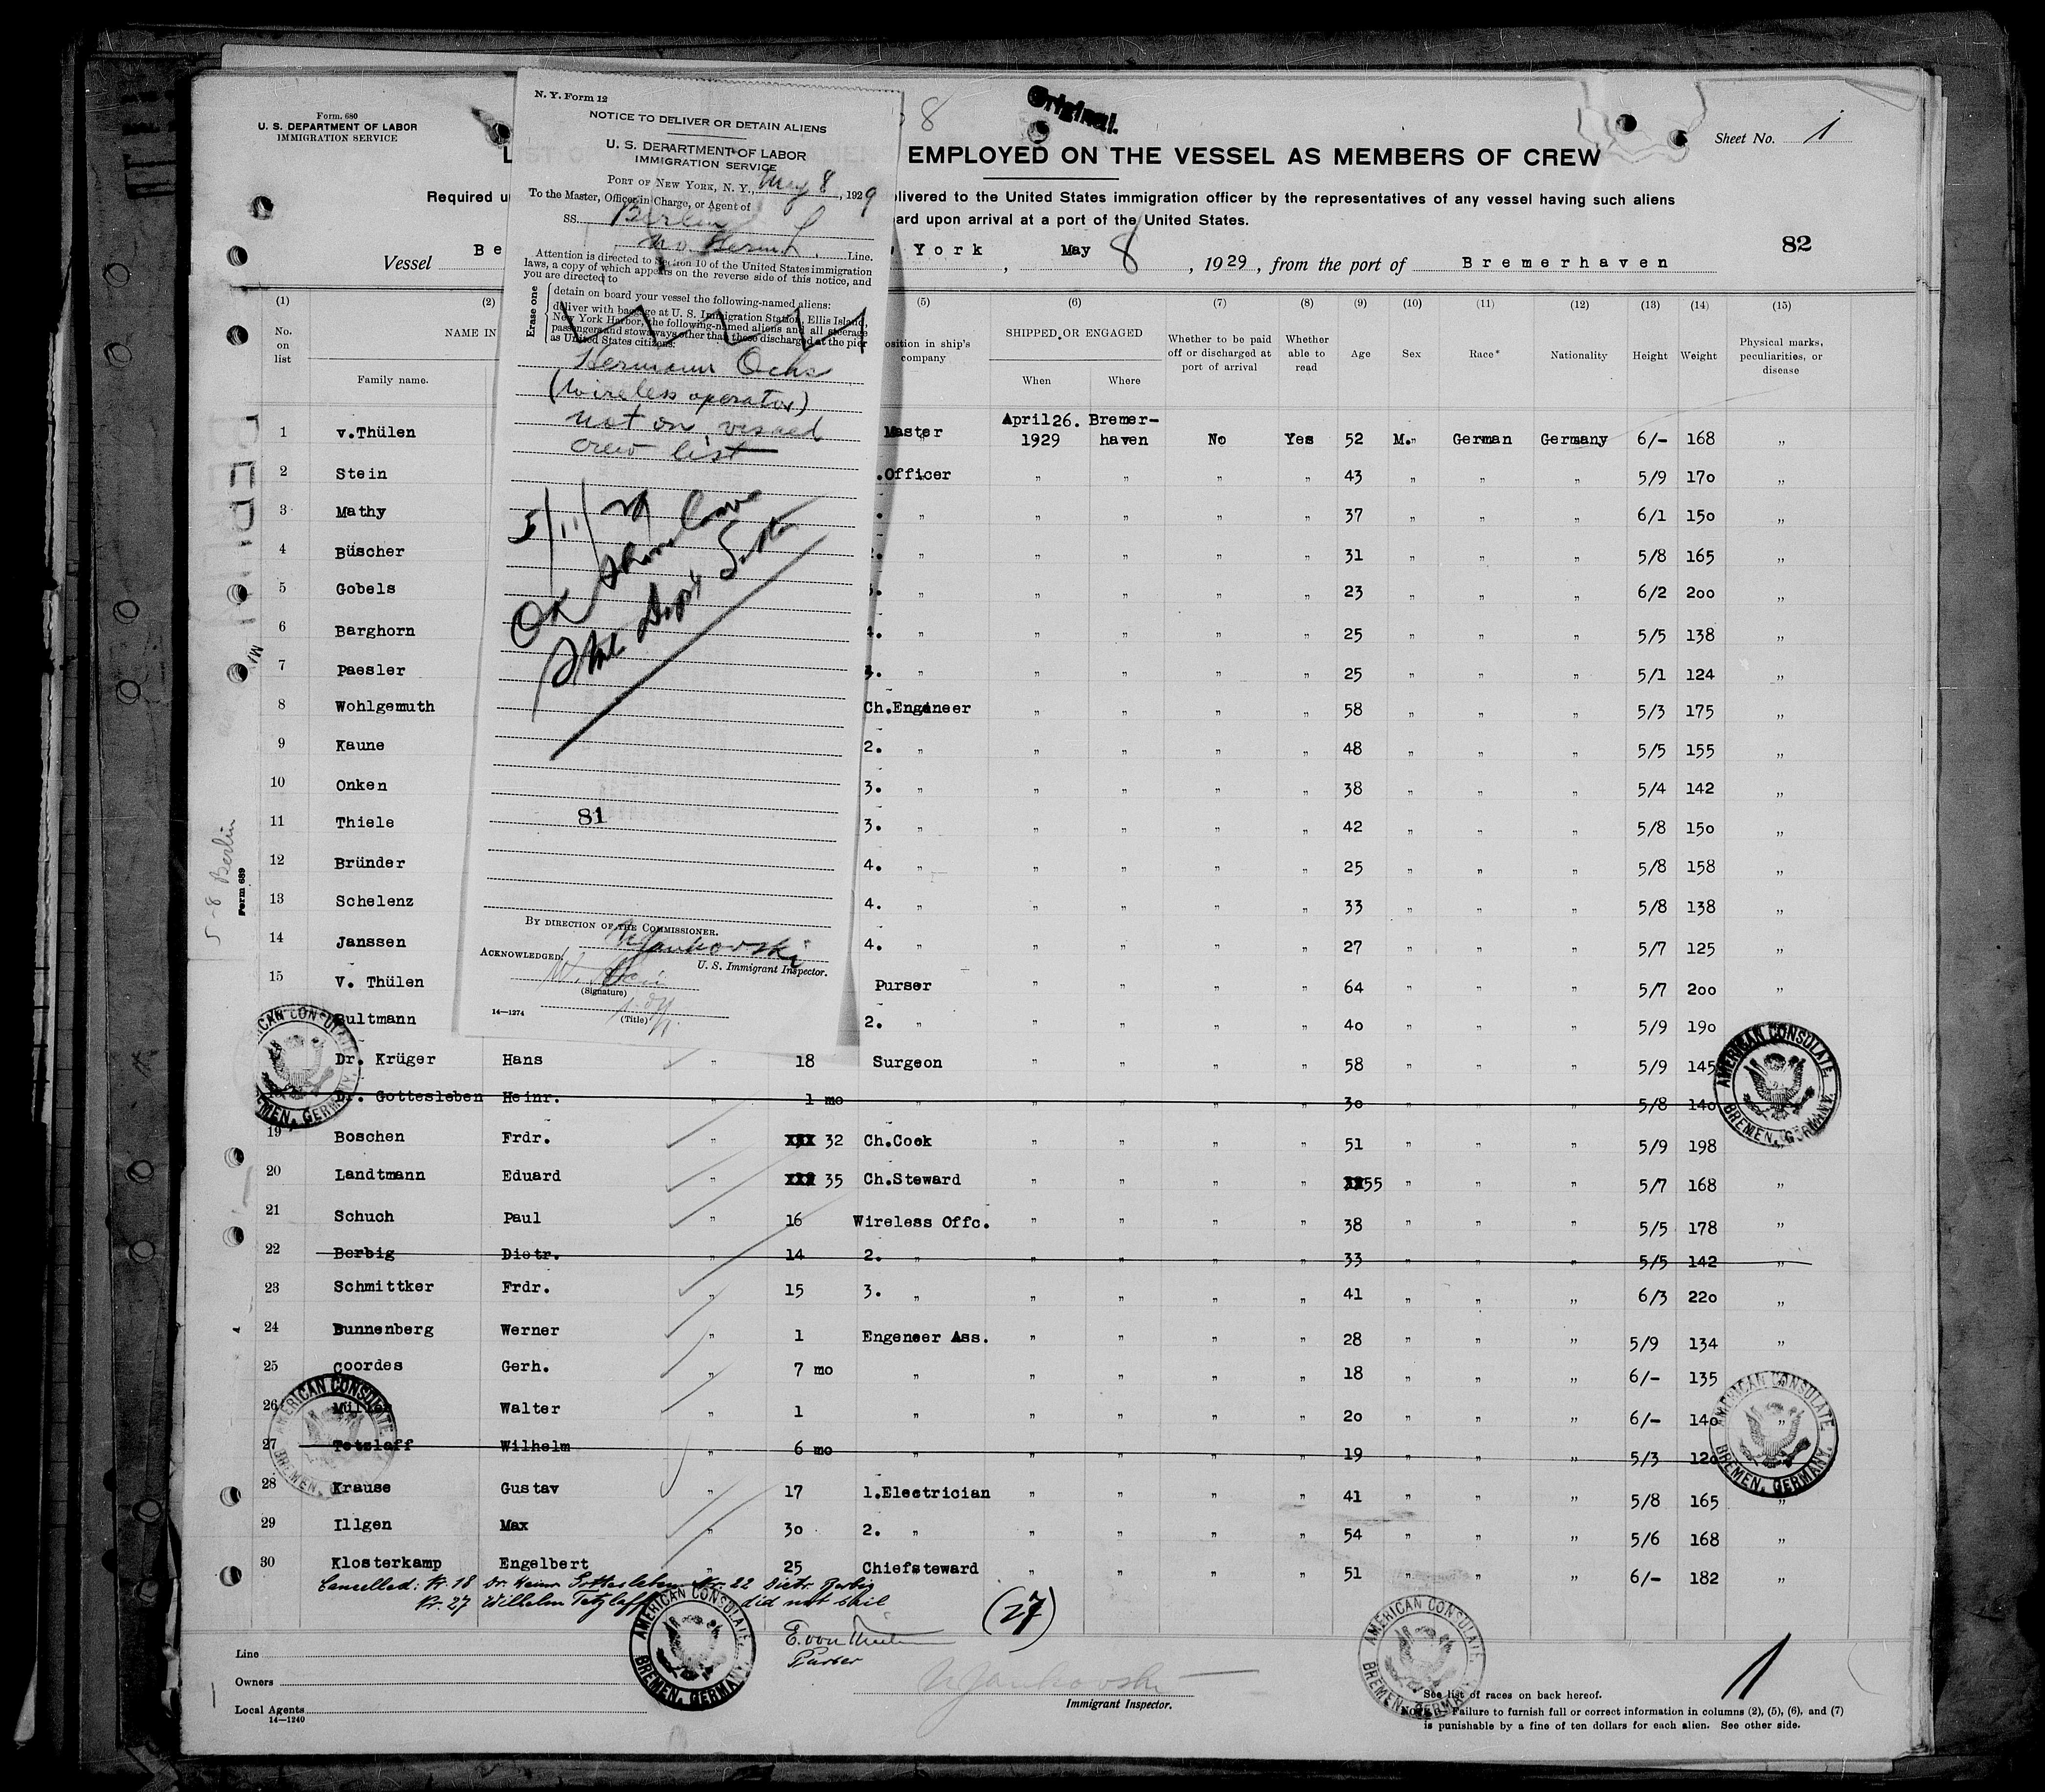 Form. 680
U. S. DEPARTMENT OF LABOR
IMMIGRATION SERVICE
N. Y. Form 12
NOTICE TO DELIVER OR DETAIN ALIENS
U. S. DEPARTMENT OF LABOR
IMMIGRATION SERVICE
PORT OF NEW YORK, N. Y., May 8, 1929
To the Master, Officer in Charge, or Agent of
SS. Berlin
No. Germ L. Line.
Attention is directed to Section 10 of the United States immigration
laws, a copy of which appears on the reverse side of this notice, and
you are directed to
Erase one
detain on board your vessel the following-named aliens:
deliver with baggage at U. S. Immigration Station, Ellis Island,
New York Harbor, the following-named aliens and all steerage
passengers and stowaways other than those discharged at the pier
as United States citizens:
Hermann Ochs
(wireless operator)
not on vessel
crew list
5/11/29
OK
State Dept
81
BY DIRECTION OF THE COMMISSIONER.
ACKNOWLEDGED.
U. S. Immigrant Inspector.
(Signature)
(Title)
14—1274
8
Original.
Sheet No. 1
EMPLOYED ON THE VESSEL AS MEMBERS OF CREW
Required u
livered to the United States immigration officer by the representatives of any vessel having such aliens
ard upon arrival at a port of the United States.
82
Vessel Be
York, May 8, 1929, from the port of Bremerhaven
(1) (2) (5) (6) (7) (8) (9) (10) (11) (12) (13) (14) (15)
No. on list
NAME IN
Family name.
osition in ship's company
SHIPPED OR ENGAGED
When
Where
Whether to be paid off or discharged at port of arrival
Whether able to read
Age
Sex
Race*
Nationality
Height
Weight
Physical marks, peculiarities, or disease
1 v.Thülen Master April 26. 1929 Bremer-haven No Yes 52 M. German Germany 6/- 168 „
2 Stein .Officer „ „ „ „ 43 „ „ „ 5/9 170 „
3 Mathy . „ „ „ „ „ 37 „ „ „ 6/1 150 „
4 Büscher 2. „ „ „ „ „ 31 „ „ „ 5/8 165 „
5 Gobels „ „ „ „ „ 23 „ „ „ 6/2 200 „
6 Barghorn 4. „ „ „ „ „ 25 „ „ „ 5/5 138 „
7 Paesler „ „ „ „ „ 25 „ „ „ 5/1 124 „
8 Wohlgemuth Ch.Engeneer „ „ „ „ 58 „ „ „ 5/3 175 „
9 Kaune 2. „ „ „ „ „ 48 „ „ „ 5/5 155 „
10 Onken 3. „ „ „ „ „ 38 „ „ „ 5/4 142 „
11 Thiele 3. „ „ „ „ „ 42 „ „ „ 5/8 150 „
12 Bründer 4. „ „ „ „ „ 25 „ „ „ 5/8 158 „
13 Schelenz 4. „ „ „ „ „ 33 „ „ „ 5/8 138 „
14 Janssen 4. „ „ „ „ „ 27 „ „ „ 5/7 125 „
15 V. Thülen Purser „ „ „ „ 64 „ „ „ 5/7 200 „
Bultmann 2. „ „ „ „ „ 40 „ „ „ 5/9 190
Dr. Krüger Hans „ 18 Surgeon „ „ „ „ 58 „ „ „ 5/9 145
Dr. Gottesleben Heinr. „ 1 mo „ „ „ „ „ 30 „ „ „ 5/8 140
19 Boschen Frdr. „ 32 Ch.Cook „ „ „ „ 51 „ „ „ 5/9 198 „
20 Landtmann Eduard „ 35 Ch.Steward „ „ „ „ 55 „ „ „ 5/7 168 „
21 Schuch Paul „ 16 Wireless Offc. „ „ „ „ 38 „ „ „ 5/5 178 „
22 Berbig Dietr. „ 14 2. „ „ „ „ „ 33 „ „ „ 5/5 142 „
23 Schmittker Frdr. „ 15 3. „ „ „ „ „ 41 „ „ „ 6/3 220 „
24 Bunnenberg Werner „ 1 Engeneer Ass. „ „ „ „ 28 „ „ „ 5/9 134 „
25 Coordes Gerh. „ 7 mo „ „ „ „ „ 18 „ „ „ 6/- 135 „
26 Müller Walter „ 1 „ „ „ „ „ 20 „ „ „ 6/- 140 „
27 Tetzlaff Wilhelm „ 6 mo „ „ „ „ „ 19 „ „ „ 5/3 120
28 Krause Gustav „ 17 1.Electrician „ „ „ „ 41 „ „ „ 5/8 165 „
29 Illgen Max „ 30 2. „ „ „ „ „ 54 „ „ „ 5/6 168 „
30 Klosterkamp Engelbert „ 25 Chiefsteward „ „ „ „ 51 „ „ „ 6/- 182 „
Cancelled: Nr. 18 Dr. Heinr Gottesleben Nr. 22 Dietr. Berbig
Nr. 27 Wilhelm Tetzlaff did not sail
(27)
Purser
Line
Owners
Local Agents
14—1240
Immigrant Inspector.
1
* See list of races on back hereof.
NOTE.—Failure to furnish full or correct information in columns (2), (5), (6), and (7)
is punishable by a fine of ten dollars for each alien. See other side.
AMERICAN CONSULATE
BREMEN, GERMANY
AMERICAN CONSULATE
BREMEN, GERMANY
AMERICAN CONSULATE
BREMEN, GERMANY
AMERICAN CONSULATE
BREMEN, GERMANY
AMERICAN CONSULATE
BREMEN, GERMANY
AMERICAN CONSULATE
BREMEN, GERMANY
5-8 Berlin
Form 689